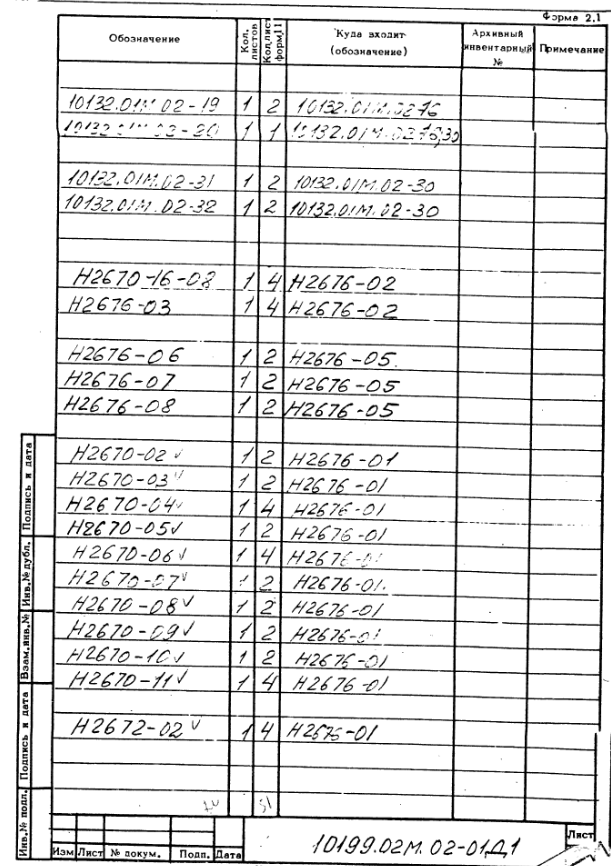 Форма 2.1
Обозначение Кол. листов Кол.лист форм.11 Куда входит (обозначение) Архивный инвентарный № Примечание
10132.01М.02-19 1 2 10132.01М.0276
10132.01М.02-20 1 1 10132.01М.0276,30
10132.01М.02-31 1 2 10132.01М.02-30
10132.01М.02-32 1 2 10132.01М.02-30
Н2670-16-08 1 4 Н2676-02
Н2676-03 1 4 Н2676-02
Н2676-06 1 2 Н2676-05
Н2676-07 1 2 Н2676-05
Н2676-08 1 2 Н2676-05
Н2670-02 √ 1 2 Н2676-01
Н2670-03 √ 1 2 Н2676-01
Н2670-04 √ 1 4 Н2676-01
Н2670-05 √ 1 2 Н2676-01
Н2670-06 √ 1 4 Н2676-01
Н2670-07 √ 1 2 Н2676-01.
Н2670-08 √ 1 2 Н2676-01
Н2670-09 √ 1 2 Н2676-01
Н2670-10 √ 1 2 Н2676-01
Н2670-11 √ 1 4 Н2676-01
Н2672-02 √ 1 4 Н2676-01
51
Подпись и дата
Инв.№ дубл.
Взам.инв.№
Подпись и дата
Инв.№ подл.
Изм Лист № докум. Подп. Дата
10199.02М.02-01Д1
Лист